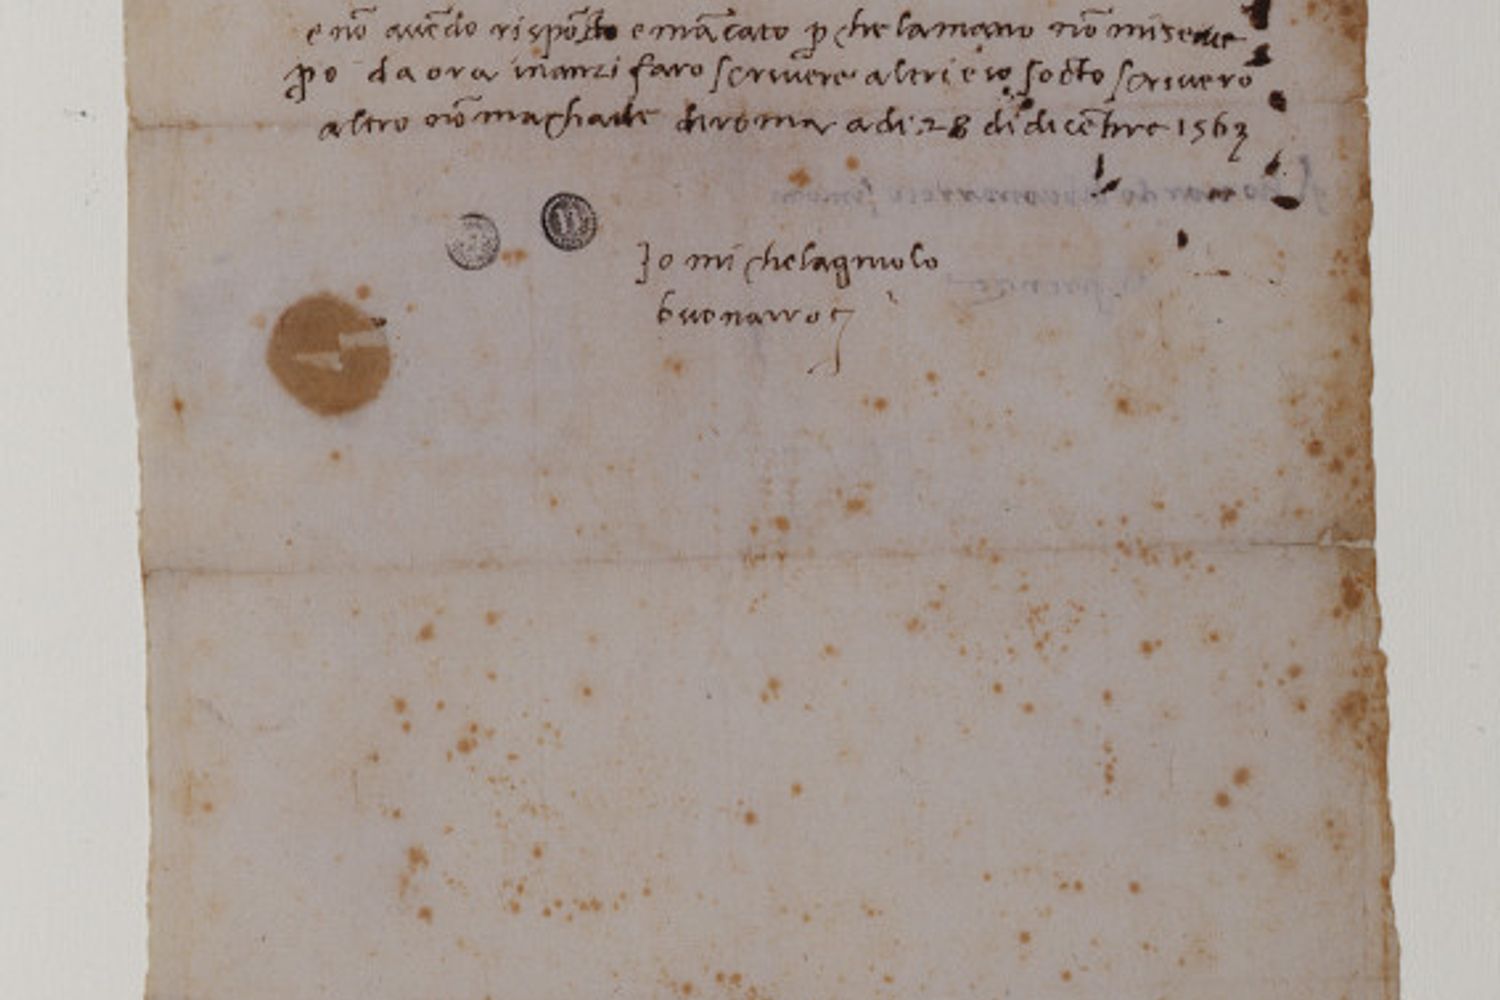 e nō auēdo risposto e mācato p̱ che la mano nō mi serve
p̱o da ora inanzi faro scrivere altri e io socto scrivero
altro nō machade di roma a di 28 di dicēbre 1563
Io michelagniolo
buonarroti